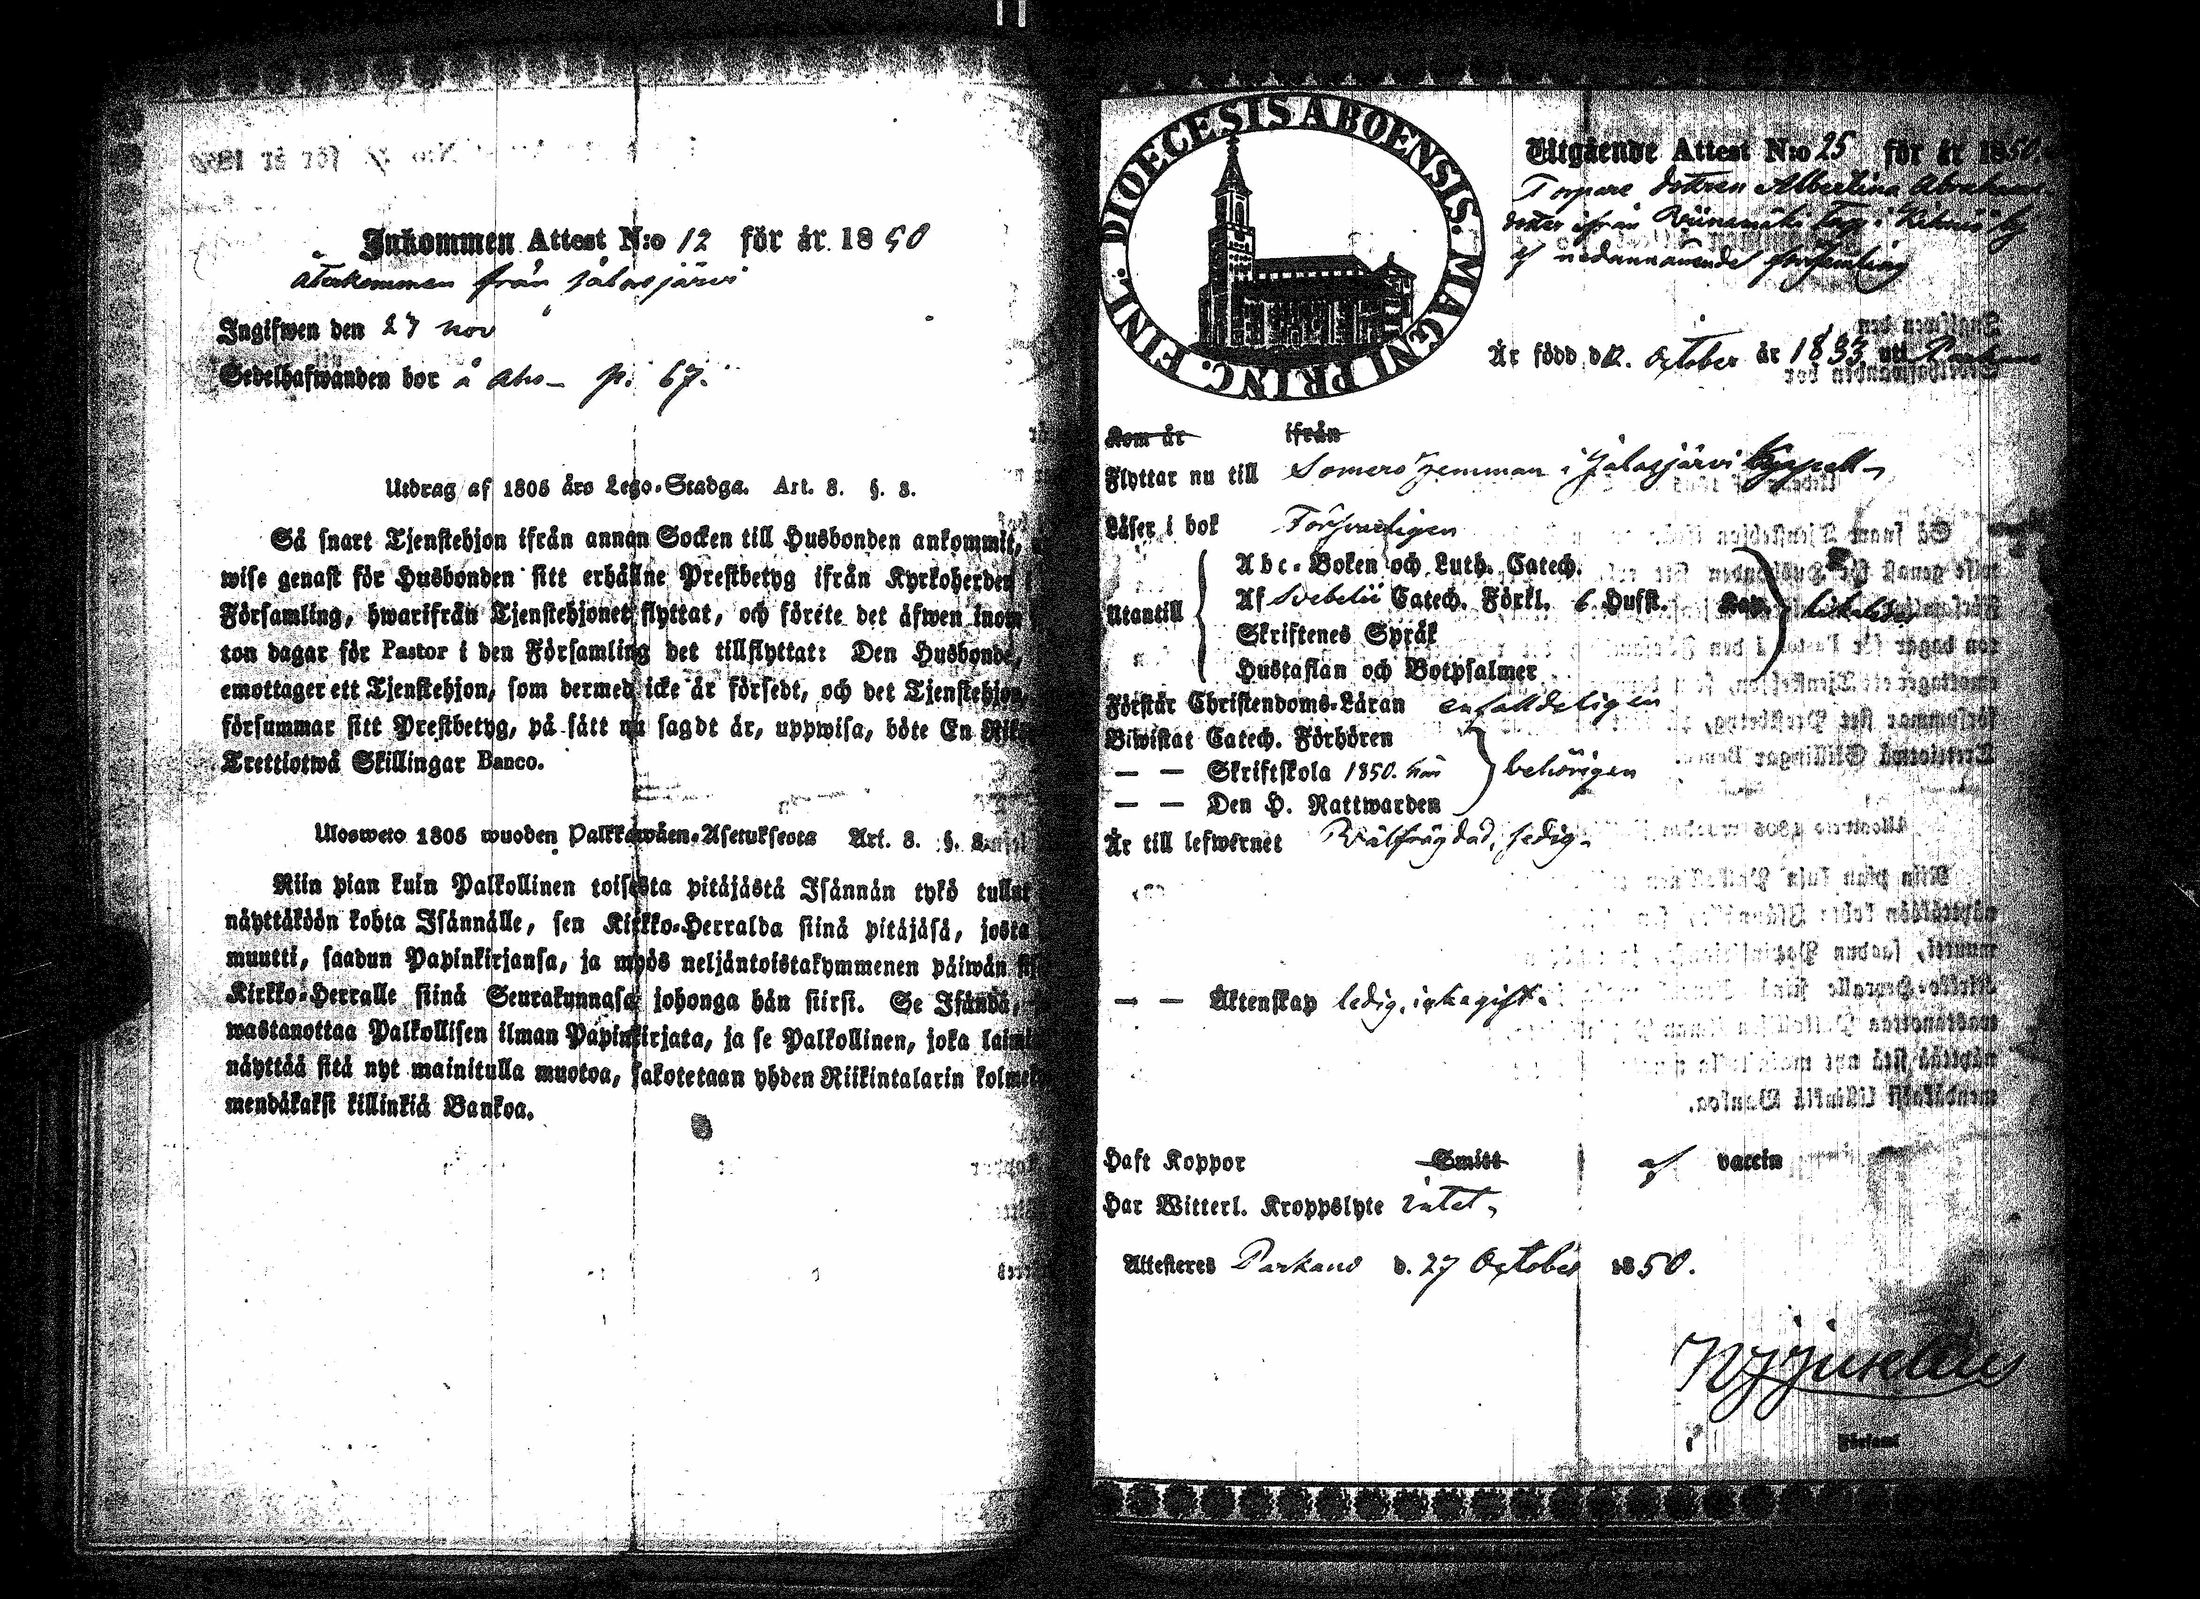 Inkommen Attest N:o 12 för år 1850
återkommen från Jalasjärvi
Ingifwen den 27 nov
Sedelhafwanden bor å Aho p: 67.
Utdrag af 1805 års Lego-Stadga. Art. 8. §. 3.
Så snart Tjenstehjon ifrån annan Socken till Husbonden ankommit,
wise genast för Husbonden sitt erhållne Prestbetyg ifrån Kyrkoherden
Församling, hwarifrån Tjenstehjonet flyttat, och förete det äfwen inom
ton dagar för Pastor i den Församling det tillflyttat: Den Husbonde,
emottager ett Tjenstehjon, som dermed icke är försedt, och det Tjenstehjon,
försummar sitt Prestbetyg, på sätt nu sagdt är, uppwisa, böte En
Trettiotwå Skillingar Banco.
Ulosweto 1805 wuoden Palkkawäen-Asetuksesta Art. 8. §. 3.
Niin pian kuin Palkollinen toisesta pitäjästä Isännän tykö tullut
näyttäköön kohta Isännälle, sen Kirkko-Herralda siinä pitäjäsä, josta
muutti, saadun Papinkirjansa, ja myös neljäntoistakymmenen päiwän
Kirkko-Herralle siinä Seurakunnasa johonga hän siirsi. Se Isändä,
wastanottaa Palkollisen ilman Papinkirjata, ja se Palkollinen, joka
näyttää sitä nyt mainitulla muotoa, sakotetaan yhden Riikintalarin
mendäkaksi killinkiä Bankoa.
DIOECESIS ABOENSIS. MAGNI PRINC. FINL.
Utgående Attest N:o 25 för år 1850.
Torpare dottren Albertina Abrahams-
dotter ifrån torp i by
af nedannämnde församling
Är född d. 12. October år 1833 uti Parkano
Kom år ifrån
Flyttar nu till Somero hemman i Jalasjärvi Capell
Läser i bok Försvarligen
Utantill
Abc-Boken och Luth. Catech.
Af Svebelii Catech. Förkl. 6 Hufst.
Skriftenes Språk
Hustaflan och Botpsalmer
Förstår Christendoms-Läran enfaldeligen
Biwistat Catech. Förhören
— — Skriftskola 1850. här behörigen
— — Den H. Nattwarden
Är till lefwernet Välfrägdad, sedig.
— — Äktenskap ledig, icke gift.
Haft Koppor Smitt af vaccin
Har Witterl. Kroppslyte intet,
Attesteres Parkano d. 27 October 1850.